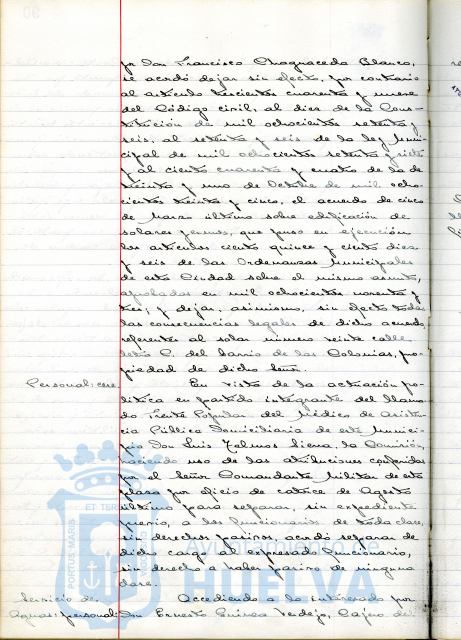 por Don Francisco Aragnaceda Blanco,
se acordó dejar sin efecto, por contrario
al artículo trescientos cuarenta y nueve
del Código civil, al diez de la Cons-
titución de mil ochocientos setenta y
seis, al setenta y seis de la ley Muni-
cipal de mil ochocientos setenta y siete
y al ciento cuarenta y cuatro de la de
treinta y uno de Octubre de mil ocho-
cientos treinta y cinco, el acuerdo de cinco
de Marzo último sobre edificación de
solares yermos, que puso en ejecución
los artículos ciento quince y ciento diez
y seis de las Ordenanzas Municipales
de esta Ciudad sobre el mismo asunto,
aprobadas en mil ochocientos noventa y
tres; y dejar, asimismo, sin efecto todas
las consecuencias legales de dicho acuerdo,
referentes al solar número veinte calle
letra C. del barrio de las Colonias, pro-
piedad de dicho señor.
Personal: cese. En vista de la actuación po-
lítica en partido integrante del llama-
do Frente Popular del Médico de Asisten-
cia Pública Domiciliaria de este Munici-
pio Don Luis Siena, la Comisión,
haciendo uso de las atribuciones conferidas
por el Señor Comandante Militar de esta
plaza por oficio de catorce de Agosto
último para separar, sin expediente
previo, a los funcionarios de toda clase,
sin derechos pasivos, acordó separar de
dicho cargo al expresado funcionario,
sin derecho a haber pasivo de ninguna
clase.
Servicio de Accediendo a lo interesado por
Aguas: personal: Don Ernesto Guinea Verdejo, Cajero del
ET TERR
PORTUS MARIS
Ayuntamiento de
HUELVA